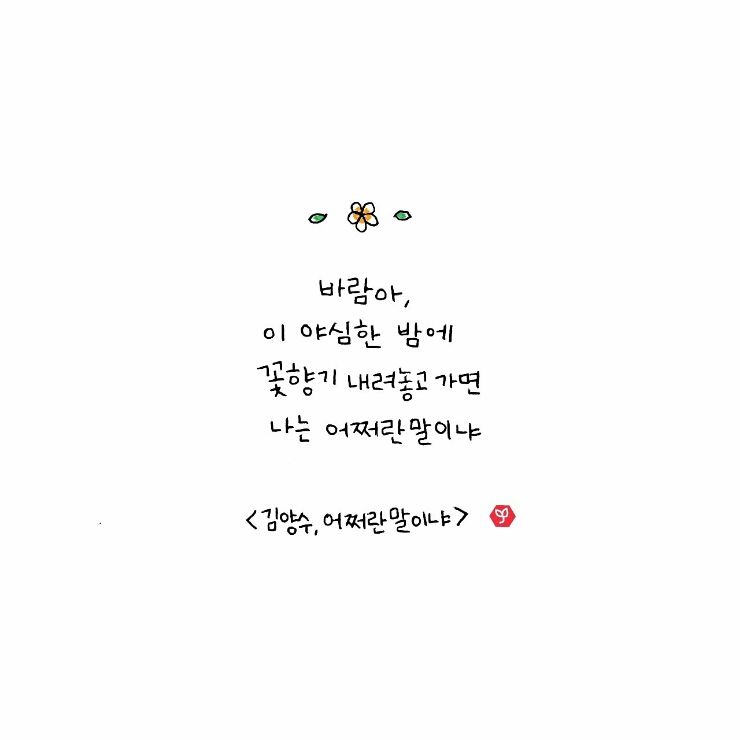 바람아,
이 야심한 밤에
꽃향기 내려놓고 가면
나는 어쩌란말이냐
<김양수, 어쩌란말이냐>